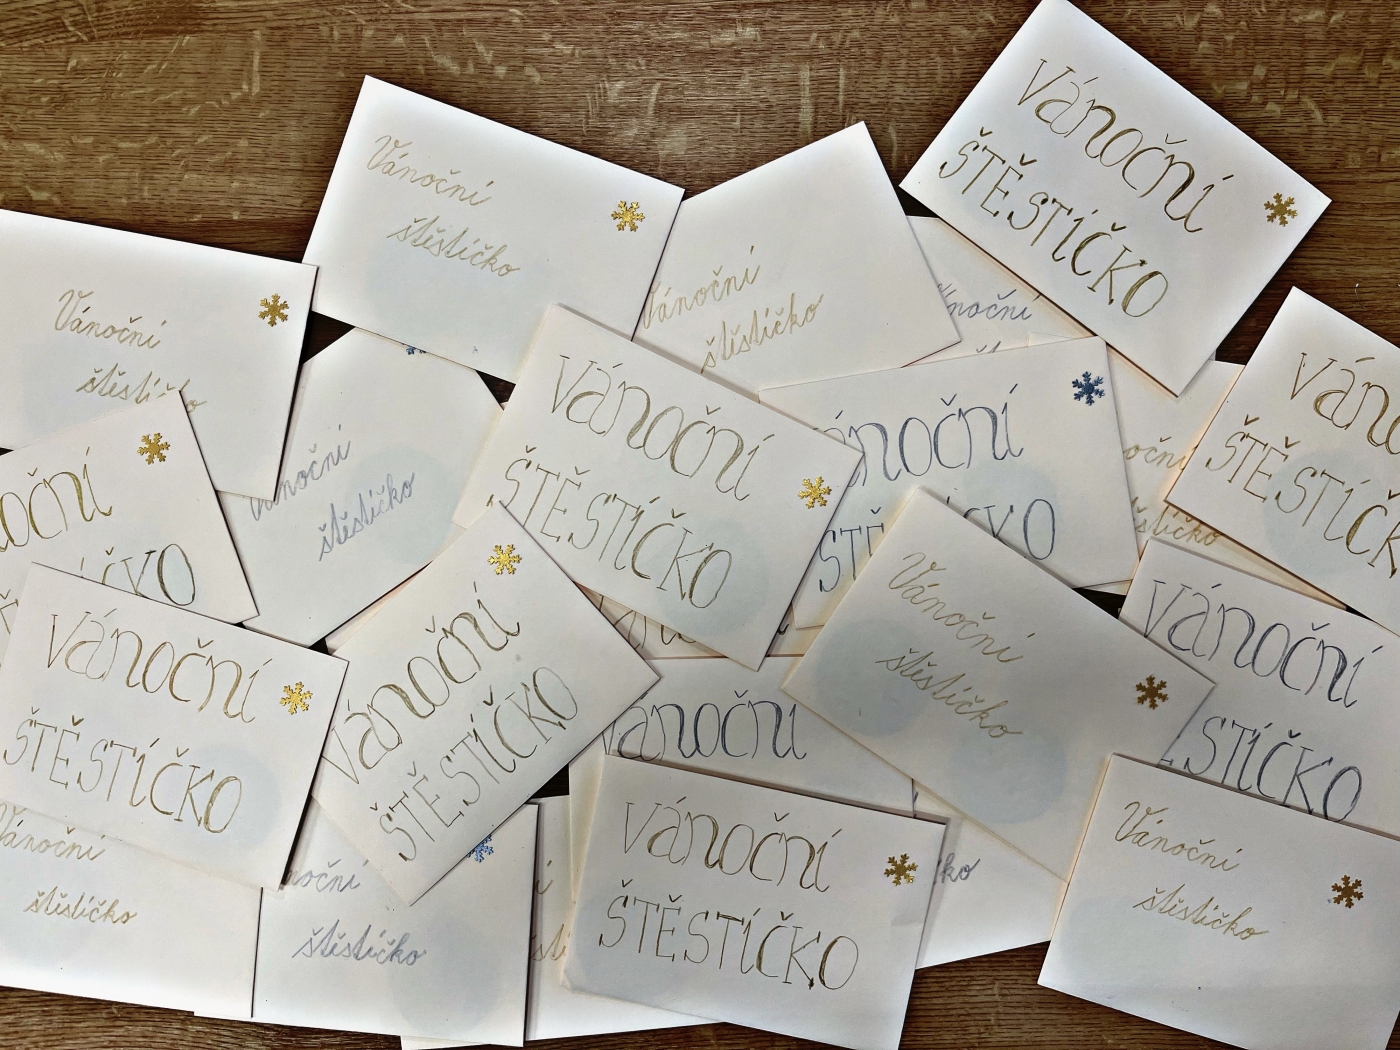 Vánoční
ŠTĚSTÍČKO
Vánoční
štěstíčko
Vánoční
štěstíčko
Vánoční
štěstíčko
Vánoční
štěstíčko
Vánoční
ŠTĚSTÍČKO
Vánoční
štěstíčko
Vánoční
ŠTĚSTÍČKO
Vánoční
štěstíčko
Vánoční
ŠTĚSTÍČKO
Vánoční
ŠTĚSTÍČKO
Vánoční
štěstíčko
štěstíčko
Vánoční
ŠTĚSTÍČKO
Vánoční
štěstíčko